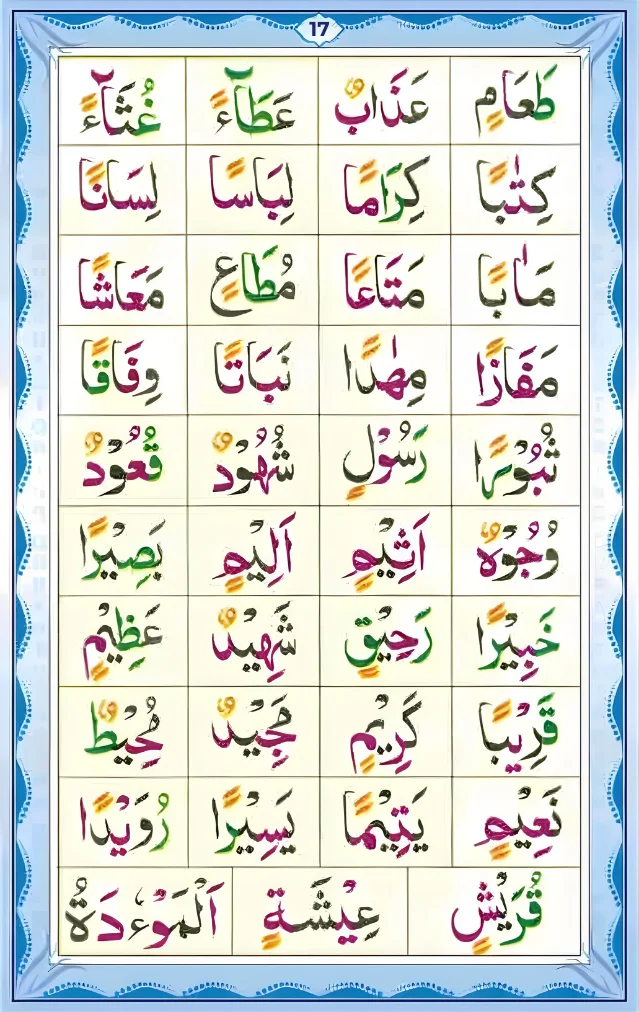 17
طَعَامٍ عَذَابٌ عَطَآءً غُثَآءً
كِتٰبًا كِرَامًا لِبَاسًا لِسَانًا
مَاٰبًا مَتَاعًا مُطَاعٍ مَعَاشًا
مَفَازًا مِهٰدًا نَبَاتًا وِفَاقًا
ثُبُوْرًا رَسُوْلٍ شُهُوْدٌ قُعُوْدٌ
وُجُوْهٌ اَثِيْمٍ اَلِيْمٍ بَصِيْرًا
خَبِيْرًا رَحِيْقٍ شَهِيْدٌ عَظِيْمٍ
قَرِيْبًا كَرِيْمٍ مَّجِيْدٌ مُّحِيْطٌ
نَعِيْمٍ يَتِيْمًا يَسِيْرًا رُوَيْدًا
قُرَيْشٍ عِيْشَةٍ اَلْمَوْءٗدَةُ